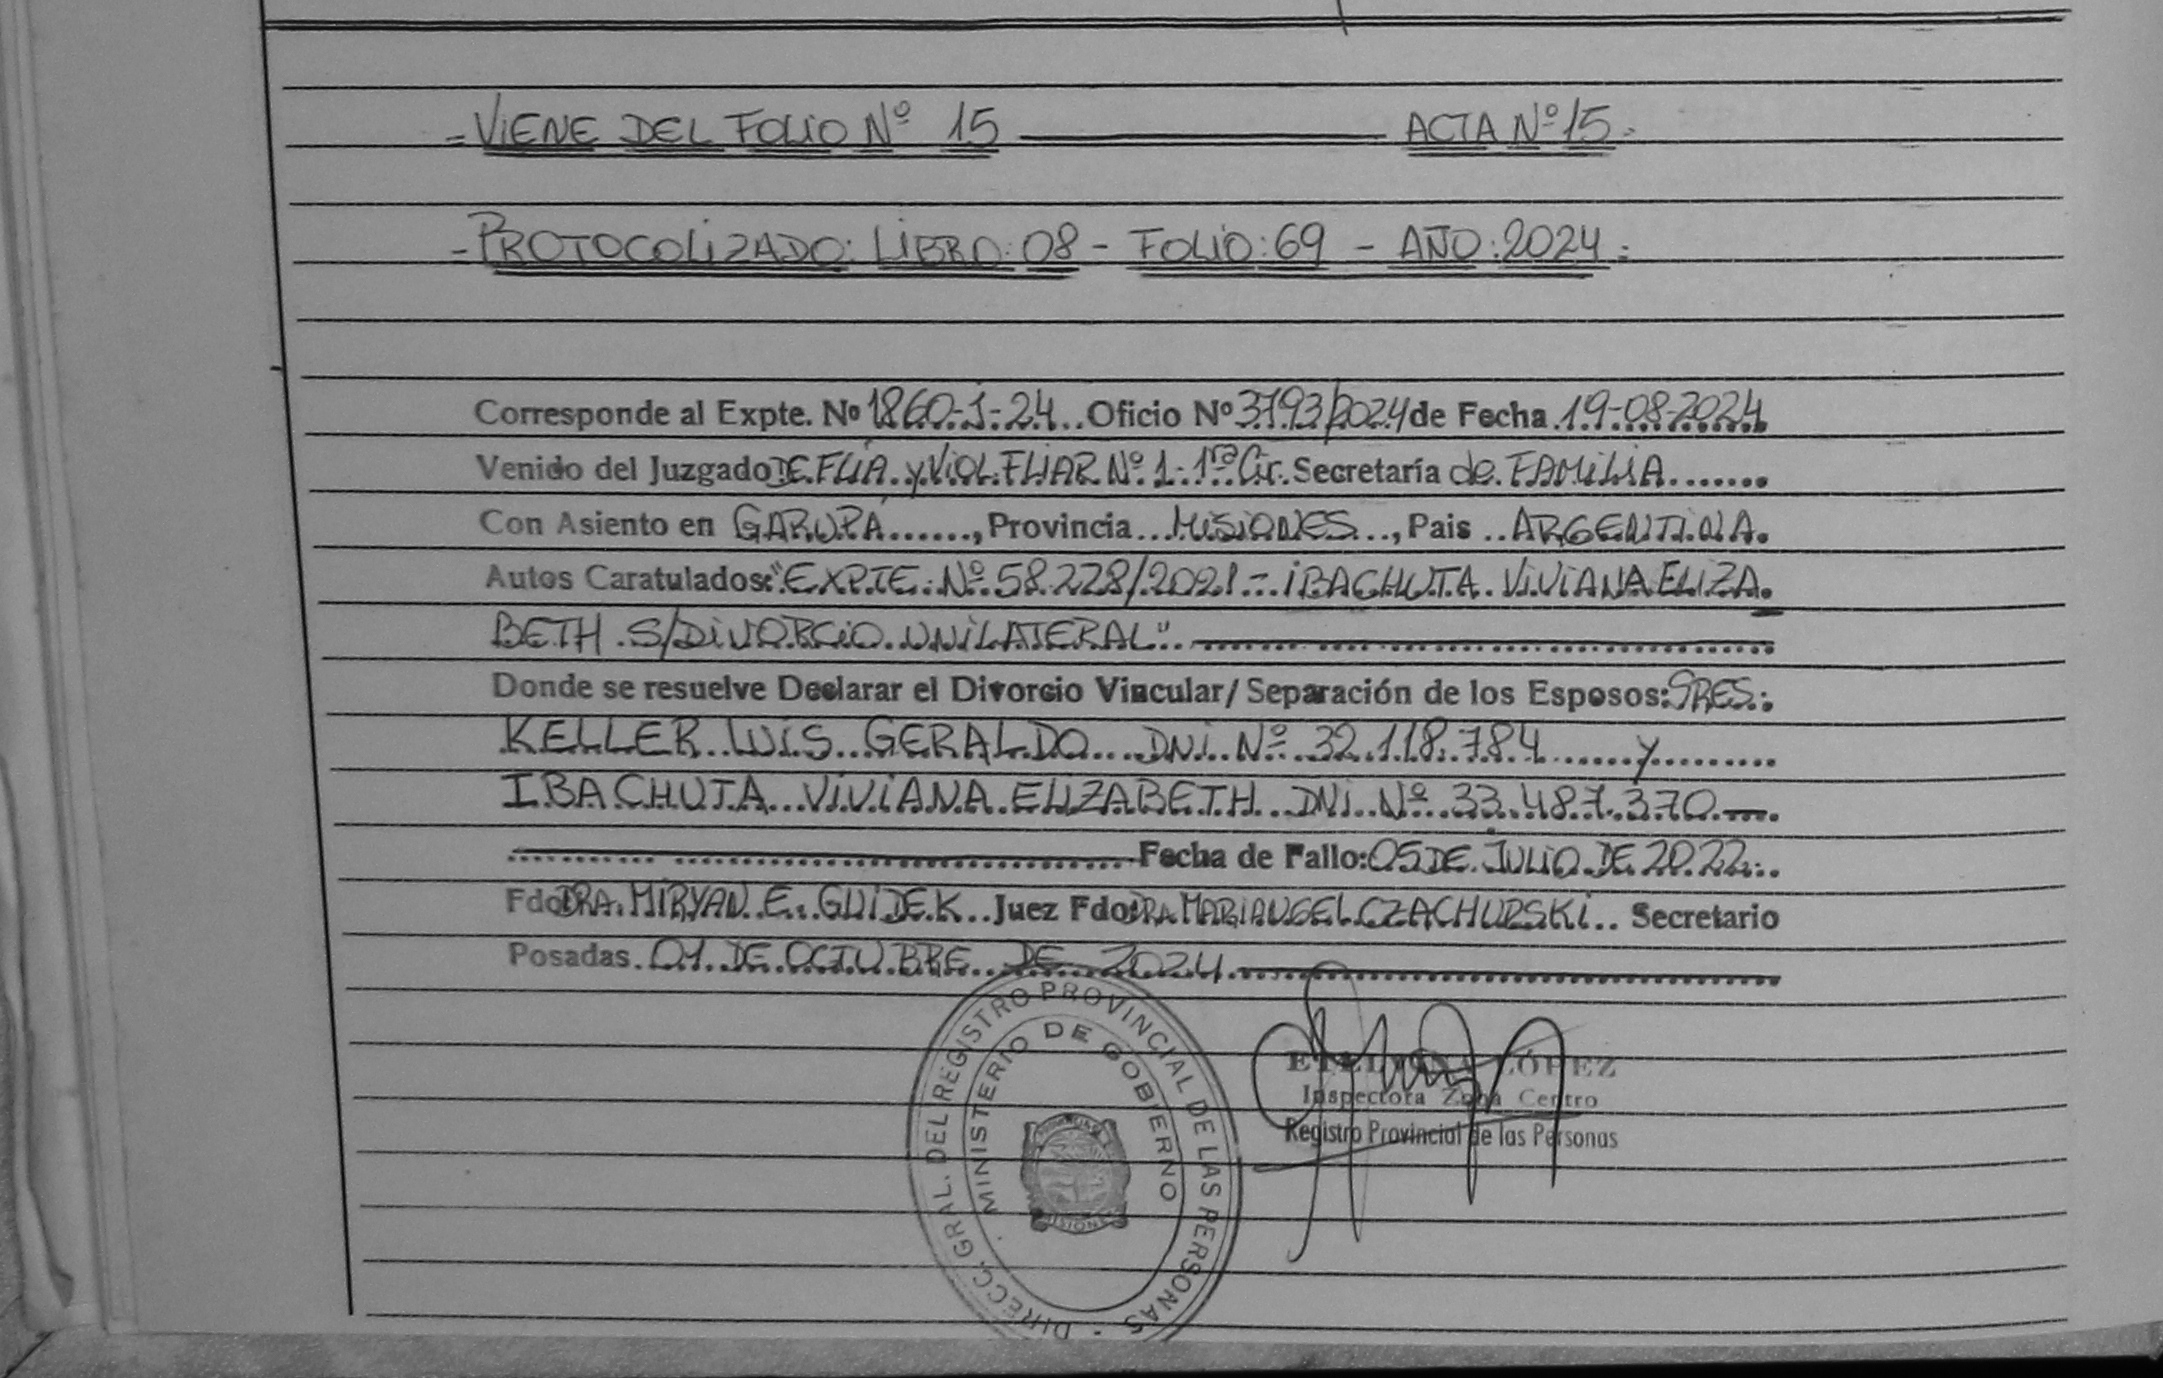 = VIENE DEL FOLIO Nº 15 ACTA Nº 15 =
- PROTOCOLIZADO: LIBRO: 08 - FOLIO: 69 - AÑO: 2024 =
Corresponde al Expte. Nº 1860-J-24 .. Oficio Nº 3793/2024 de Fecha 19-08-2024
Venido del Juzgado DE FLIA. y VIOL. FLIAR Nº 1 - 1ra Cir. Secretaría de FAMILIA.......
Con Asiento en GARUPÁ......, Provincia ... MISIONES ..., Pais .. ARGENTINA.
Autos Caratulados: "EXPTE. Nº 58.228/2021 - IBACHUTA. VIVIANA ELIZA
BETH. S/DIVORCIO UNILATERAL".
Donde se resuelve Declarar el Divorcio Vincular/ Separación de los Esposos: SRES.:
KELLER LUIS GERALDO DNI. Nº 32.118.784 ...... y .........
IBACHUTA VIVIANA ELIZABETH DNI. Nº 33.487.370.-
Fecha de Fallo: 05 DE JULIO DE 2022.
Fdo DRA. MIRYAN E. GUIDEK .. Juez Fdo: DRA MARIANGEL CZACHURSKI .. Secretario
Posadas. 01 DE OCTUBRE DE 2024.
DIRECC. GRAL. DEL REGISTRO PROVINCIAL DE LAS PERSONAS -
MINISTERIO DE GOBIERNO
MISIONES
LÓPEZ
Inspectora Zona Centro
Registro Provincial de las Personas